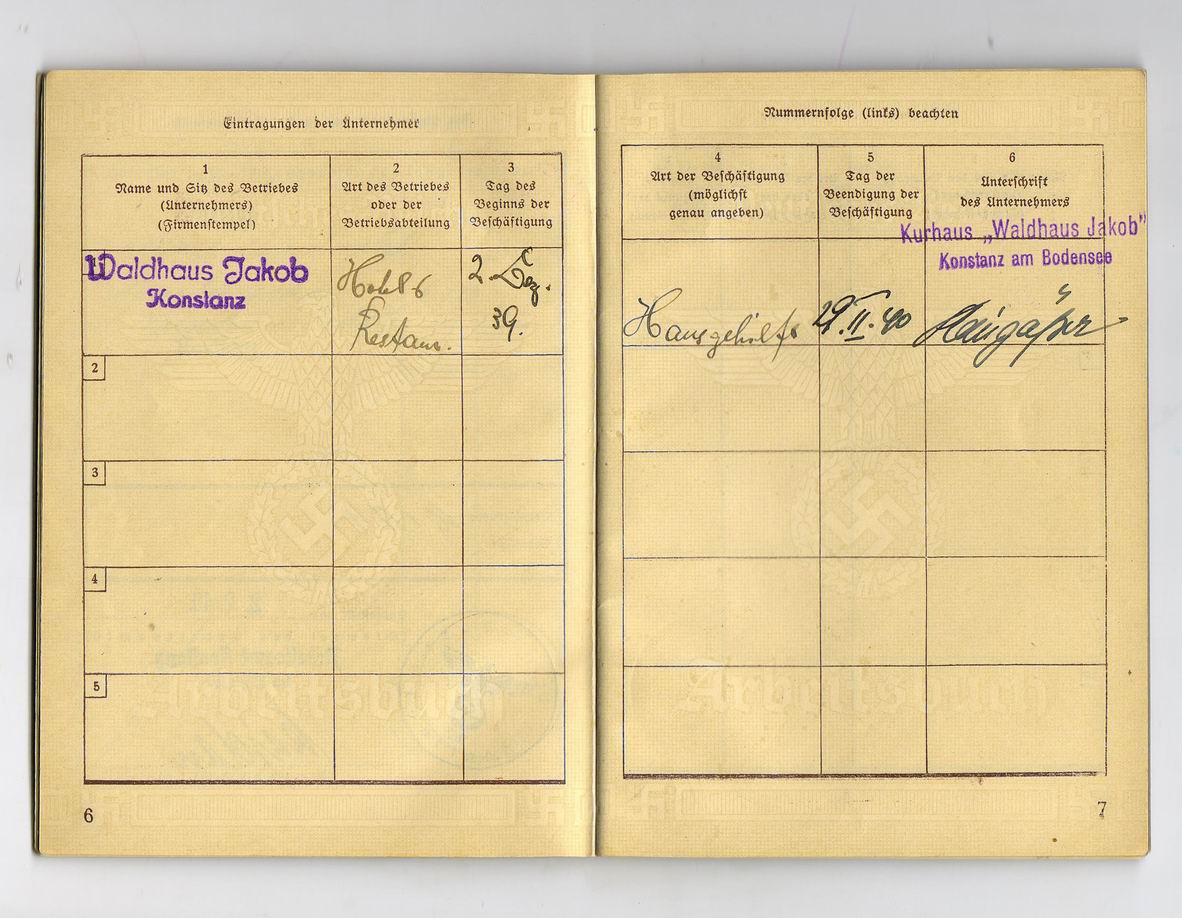 Eintragungen der Unternehmer
1
Name und Sitz des Betriebes
(Unternehmers)
(Firmenstempel)
2
Art des Betriebes
oder der
Betriebsabteilung
3
Tag des
Beginns der
Beschäftigung
Waldhaus Jakob
Konstanz
Restaur.
2. Dez.
39.
2
3
4
5
Arbeitsbuch
6
Nummernfolge (links) beachten
4
Art der Beschäftigung
(möglichst
genau angeben)
5
Tag der
Beendigung der
Beschäftigung
6
Unterschrift
des Unternehmers
Kurhaus „Waldhaus Jakob"
Konstanz am Bodensee
Hausgehilfe
29.II.40
Arbeitsbuch
7